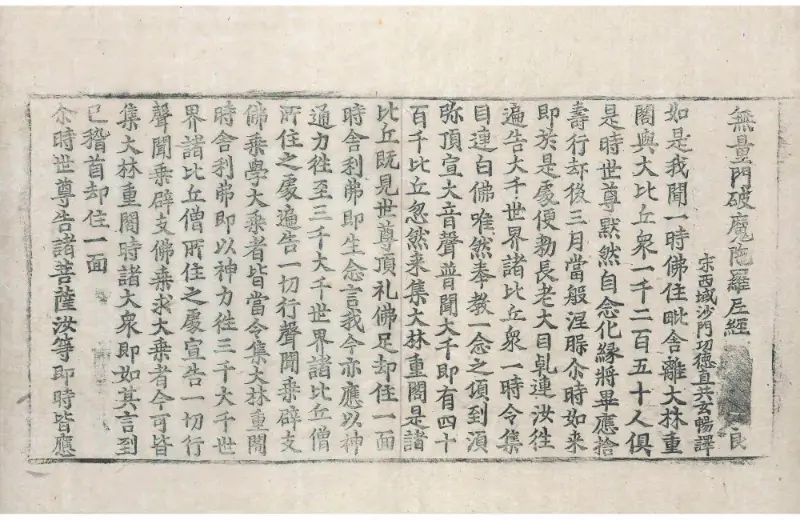 無量門破魔陁羅尼經 良
宋西域沙門功德直共玄暢譯
如是我聞一時佛住毗舍離大林重
閣與大比丘衆一千二百五十人俱
是時世尊黙然自念化緣將畢應捨
壽行却後三月當般涅槃尒時如来
即於是處便勑長老大目乹連汝徃
遍告大千世界諸比丘衆一時令集
目連白佛唯然奉教一念之頃到湏
弥頂宣大音聲普聞大千即有四十
百千比丘忽然来集大林重閣是諸
比丘既見世尊頂礼佛足却住一面
時舍利弗即生念言我今亦應以神
通力徃至三千大千世界諸比丘僧
所住之處遍告一切行聲聞乘辟支
佛乘學大乘者皆當令集大林重閣
時舍利弗即以神力徃三千大千世
界諸比丘僧所住之處宣告一切行
聲聞乘辟支佛乘求大乘者令可皆
集大林重閣時諸大衆即如其言到
已稽首却住一面
尒時世尊告諸菩薩汝等即時皆應